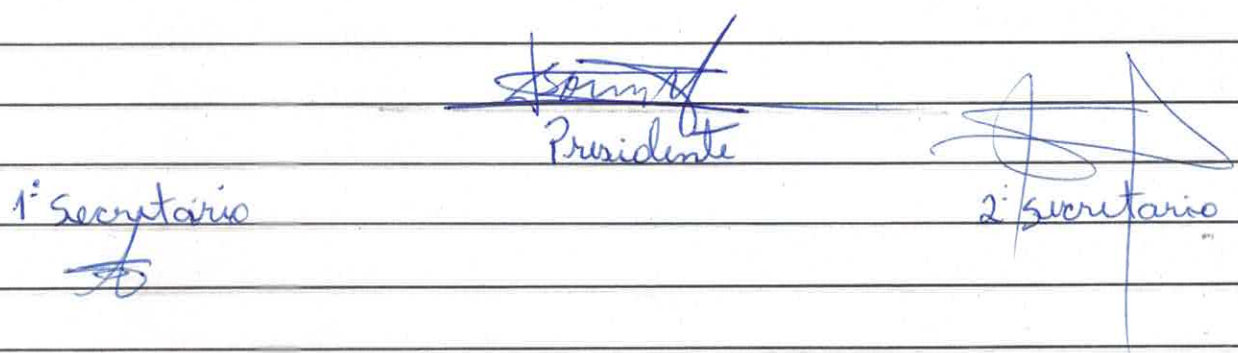 Presidente
1º Secretário
2º secretario